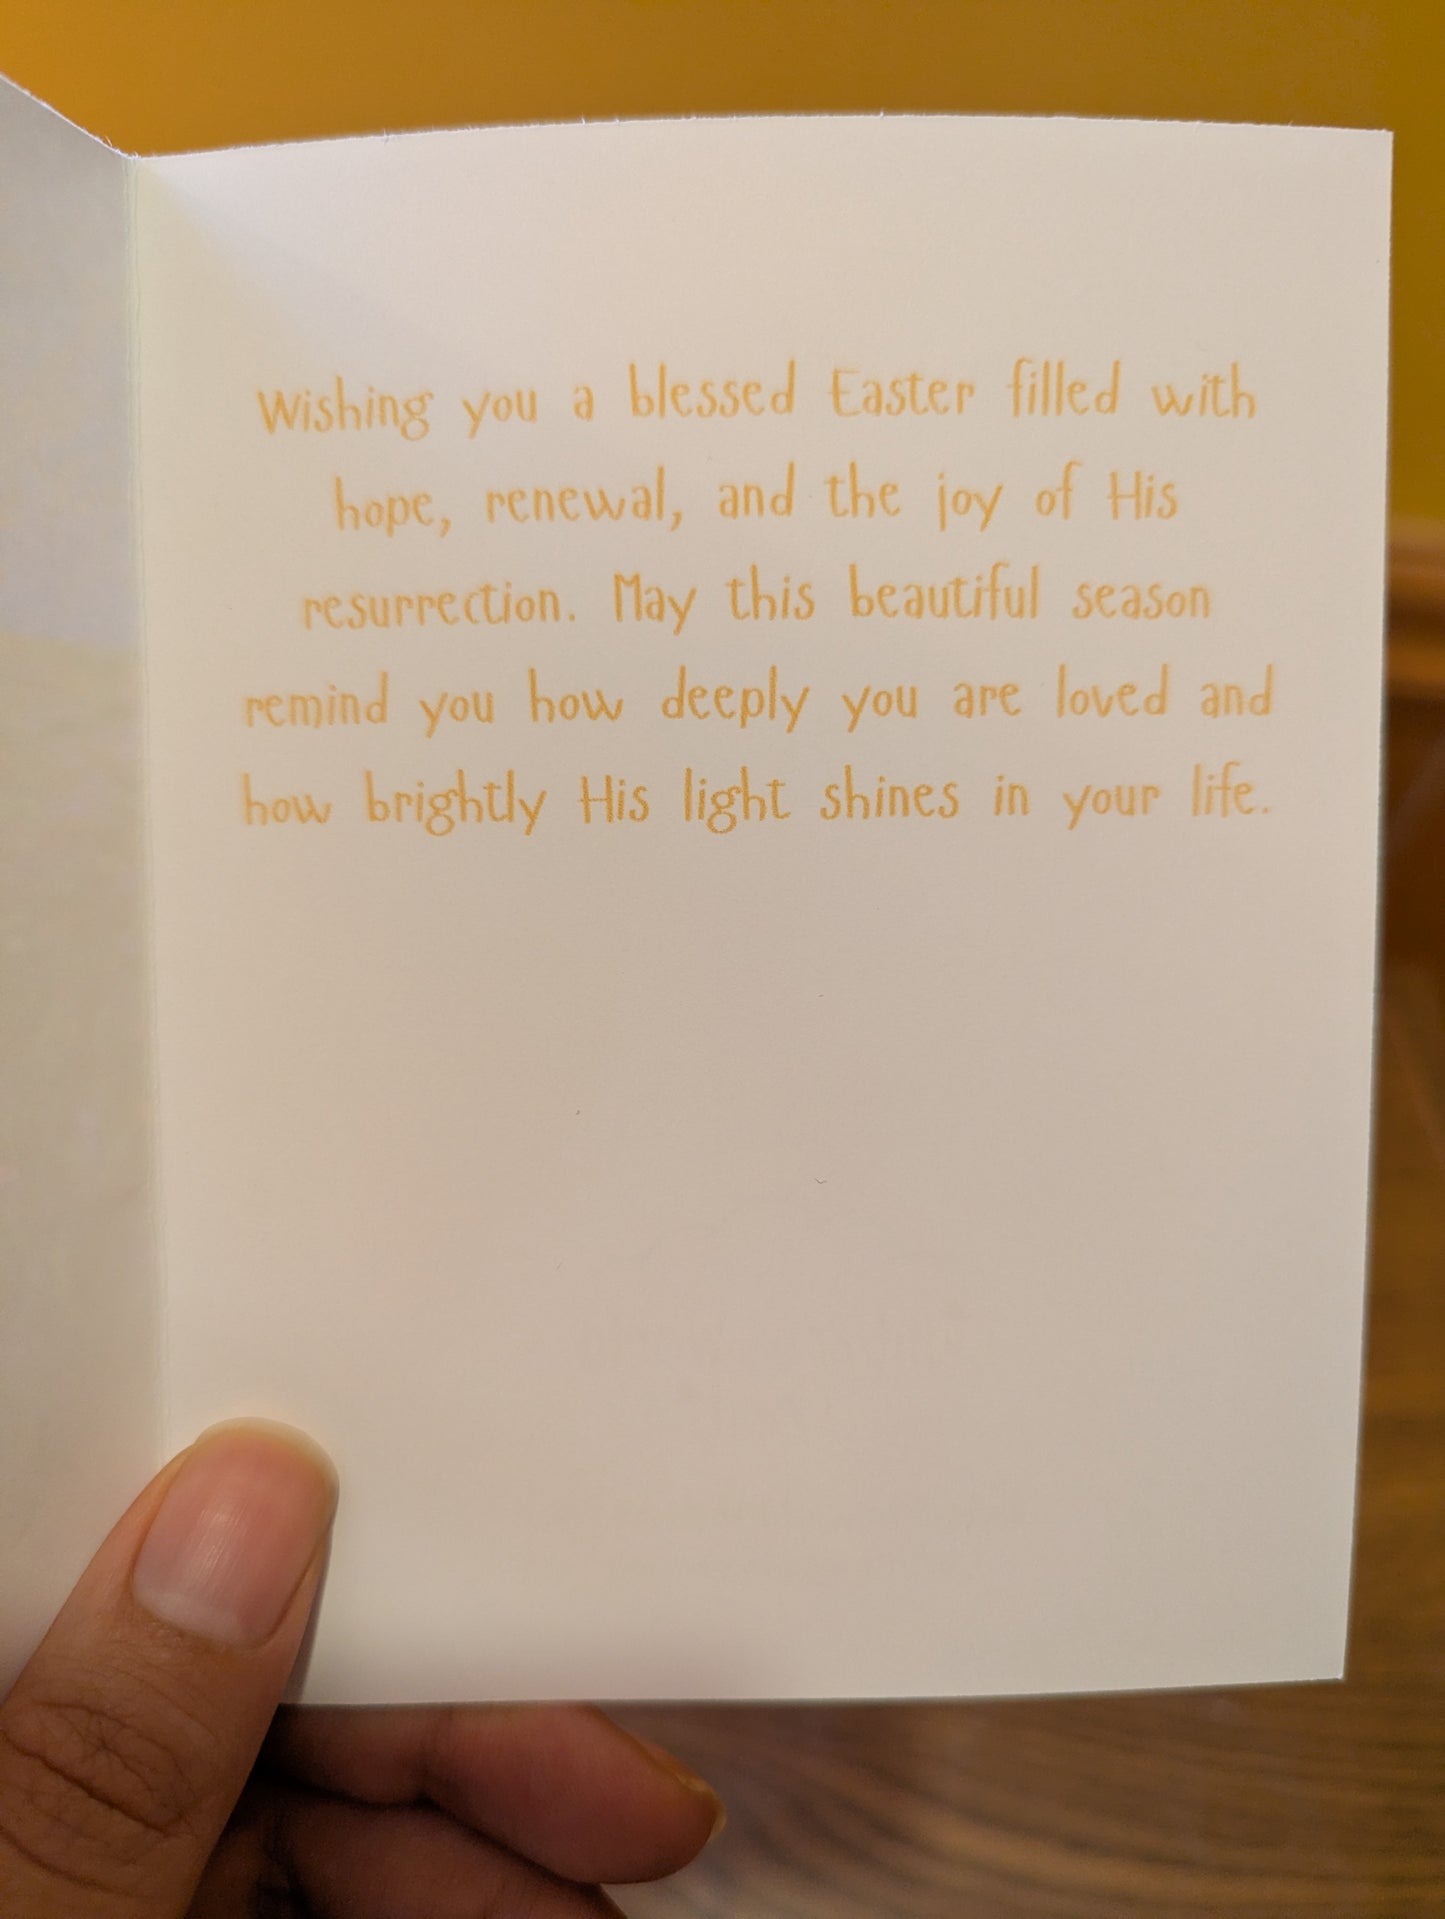 Wishing you a blessed Easter filled with
hope, renewal, and the joy of His
resurrection. May this beautiful season
remind you how deeply you are loved and
how brightly His light shines in your life.